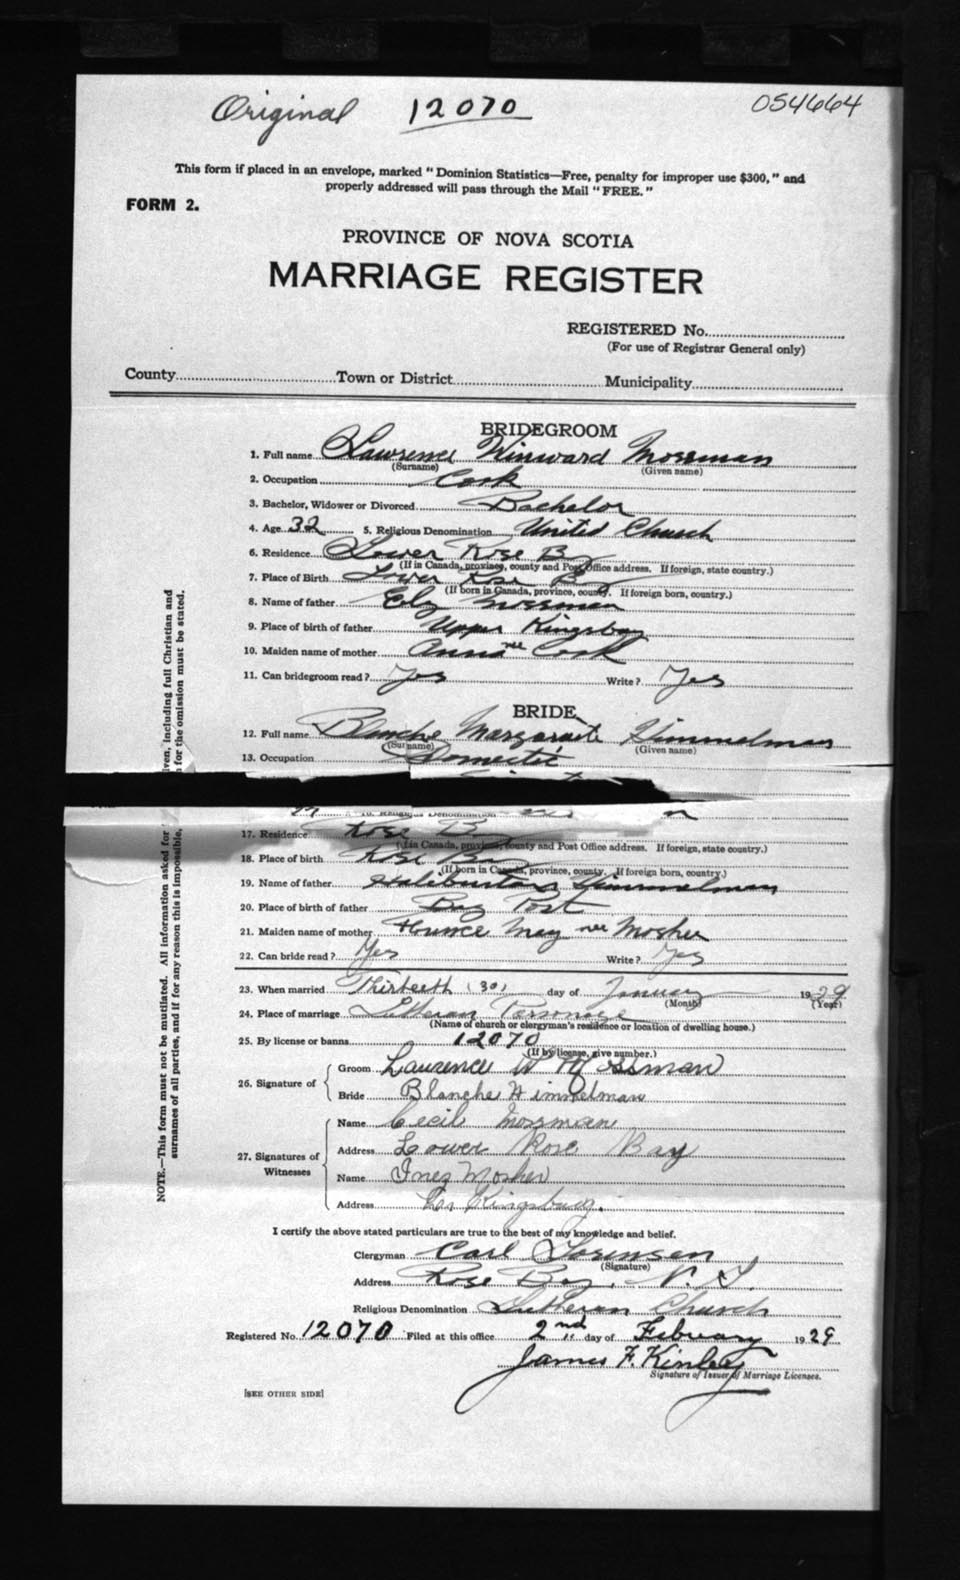 Original 12070 054664
This form if placed in an envelope, marked "Dominion Statistics—Free, penalty for improper use $300," and
properly addressed will pass through the Mail "FREE."
FORM 2.
PROVINCE OF NOVA SCOTIA
MARRIAGE REGISTER
REGISTERED No.
(For use of Registrar General only)
County Town or District Municipality
BRIDEGROOM
1. Full name Lawrence Winward Mossman
(Surname) (Given name)
2. Occupation Cook
3. Bachelor, Widower or Divorced Bachelor
4. Age 32 5. Religious Denomination United Church
6. Residence Lower Rose Bay
(If in Canada, province, county and Post Office address. If foreign, state country.)
7. Place of Birth Lower Rose Bay
(If born in Canada, province, county. If foreign born, country.)
8. Name of father Mossman
9. Place of birth of father Upper Kingsbay
10. Maiden name of mother Anna nee Cook
11. Can bridegroom read? Yes Write? Yes
BRIDE
12. Full name Blanche Margaraete Himmelman
(Surname) (Given name)
13. Occupation Domestic
17. Residence Rose Bay
(If in Canada, province, county and Post Office address. If foreign, state country.)
18. Place of birth Rose Bay
(If born in Canada, province, county. If foreign born, country.)
19. Name of father Himmelman
20. Place of birth of father Port
21. Maiden name of mother May nee Mosher
22. Can bride read? Yes Write? Yes
23. When married Thirteeth (30) day of January 1929
(Month) (Year)
24. Place of marriage Lutheran Parsonage
(Name of church or clergyman's residence or location of dwelling house.)
25. By license or banns 12070
(If by license, give number.)
26. Signature of Groom Lawrence W Mossman
Bride Blanche Himmelman
27. Signatures of Witnesses Name Cecil Mossman
Address Lower Rose Bay
Name Inez Mosher
Address Kingsburg.
I certify the above stated particulars are true to the best of my knowledge and belief.
Clergyman Carl Sorensen
(Signature)
Address Rose Bay, N. S.
Religious Denomination Lutheran Church
Registered No. 12070 Filed at this office 2nd day of February 1929
James F. Kinley
Signature of Issuer of Marriage Licenses.
[SEE OTHER SIDE]
NOTE.—This form must not be mutilated. All information asked for
surnames of all parties, and if for any reason this is impossible,
ven, including full Christian and
for the omission must be stated.